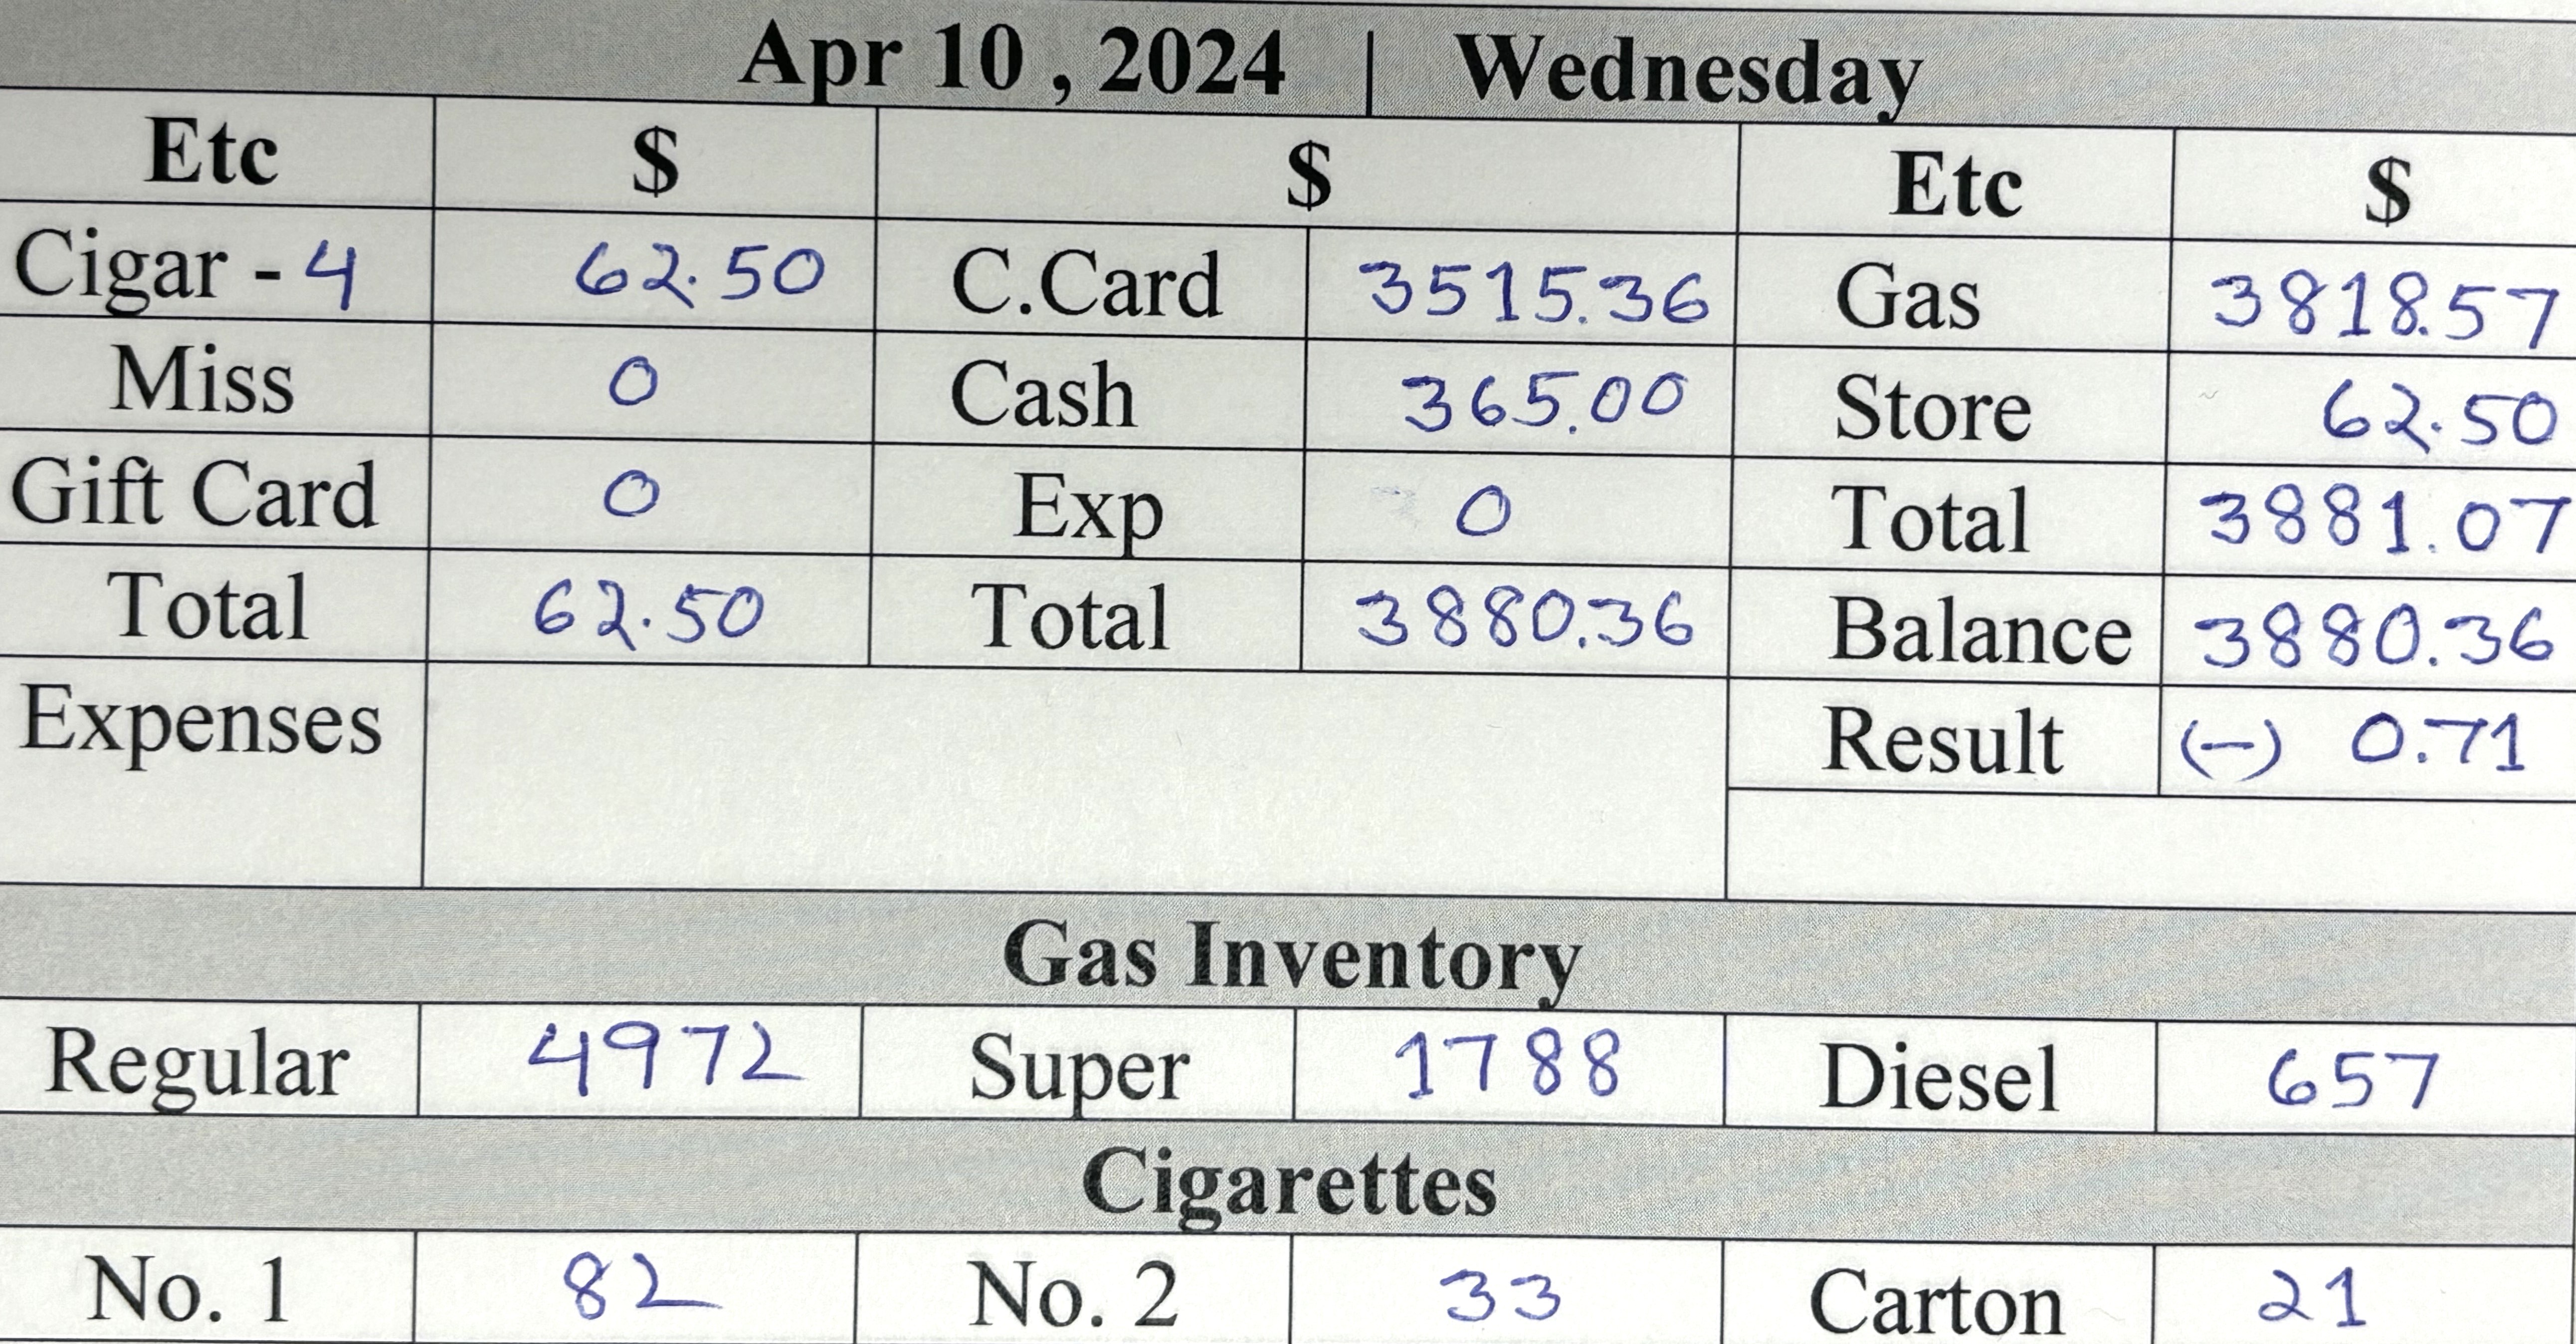 Apr 10 , 2024 | Wednesday
Etc $ $ Etc $
Cigar - 4 62.50 C.Card 3515.36 Gas 3818.57
Miss 0 Cash 365.00 Store 62.50
Gift Card 0 Exp 0 Total 3881.07
Total 62.50 Total 3880.36 Balance 3880.36
Expenses Result (-) 0.71
Gas Inventory
Regular 4972 Super 1788 Diesel 657
Cigarettes
No. 1 82 No. 2 33 Carton 21